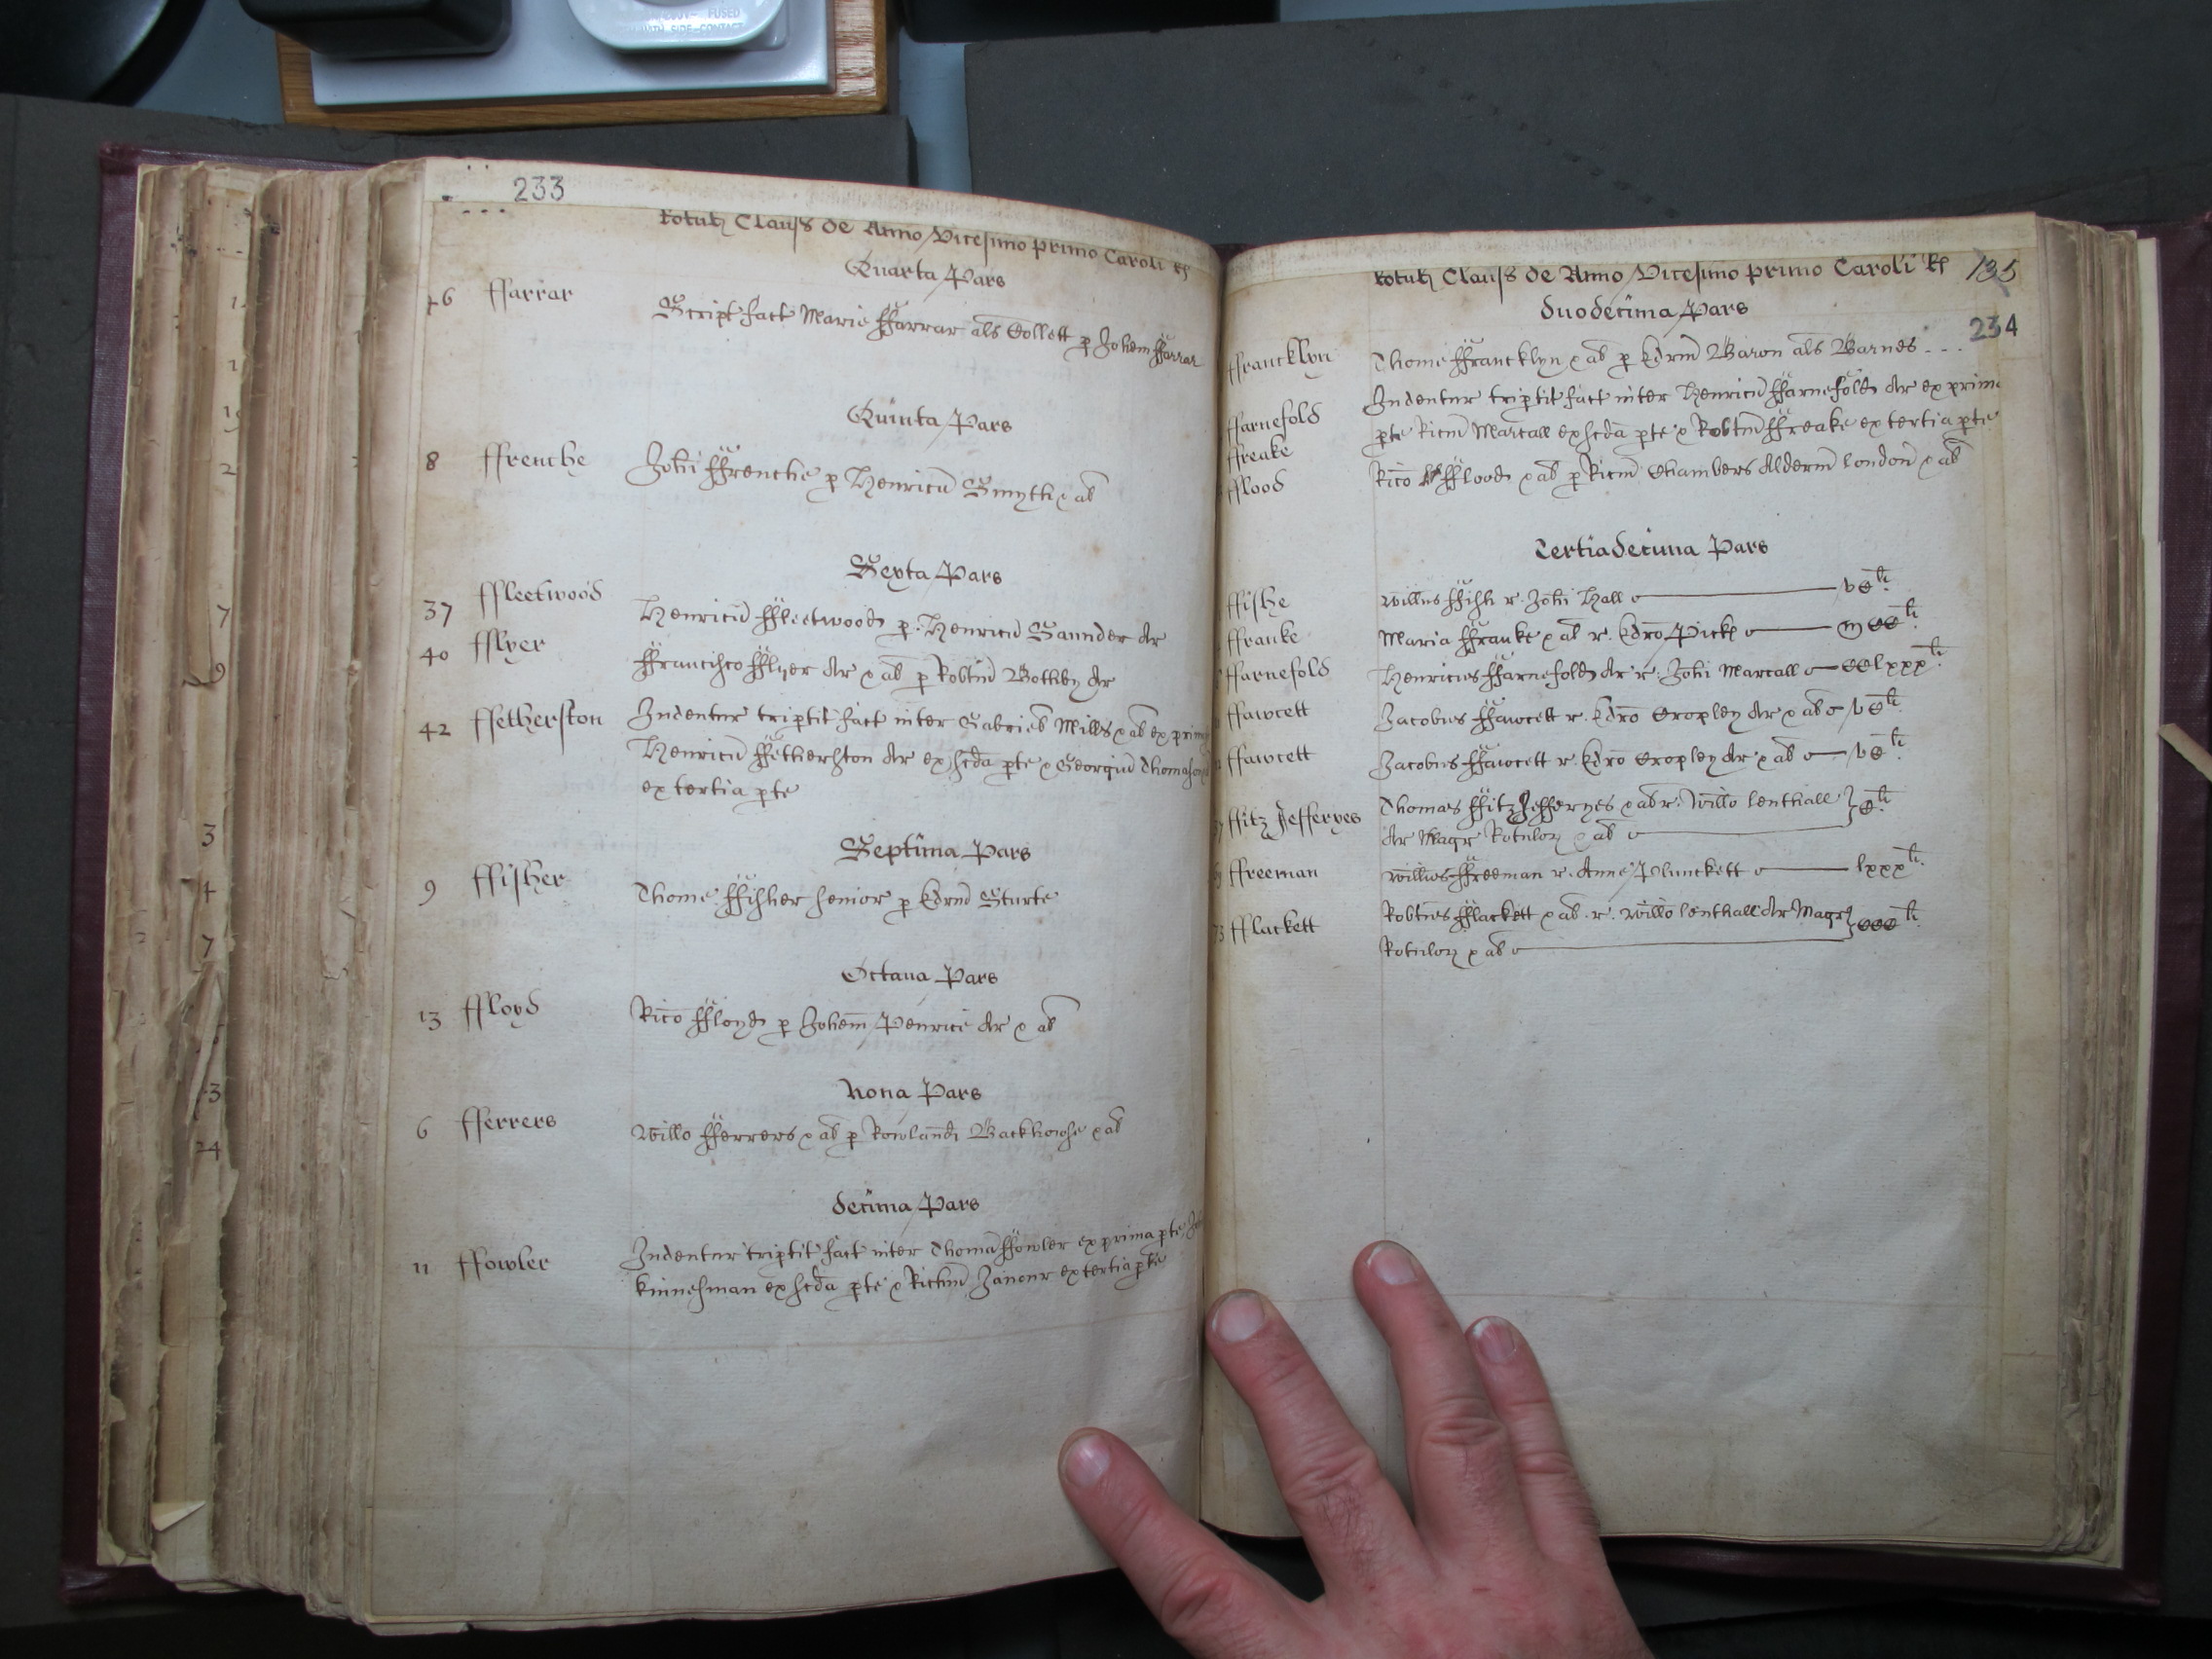 FUSED
WITH SIDE-CONTACT
233
Rotul Claus de Anno Vicesimo primo Caroli R
Quarta Pars
46 ffarrar Script fact Marie ffarrar als Collett p Johem ffarrar
Quinta Pars
8 ffrenche Johi ffrenche p Henricu Smyth x al
Sexta Pars
37 ffleetwood Henricu ffleetwood p Henricu Saunder Ar
40 fflyer ffrancisco fflyer Ar x al p Robtm Bothby Ar
42 ffetherston Indentur triptit fact inter Gabriel Mills x al ex prim
Henricu ffetherston Ar ex scda pte x Georgiu Thomason
ex tertia pte
Septima Pars
9 ffisher Thome ffisher senior p Edrm Sturte
Octaua Pars
13 ffloyd Rico ffloyd p Johem Penrice Ar x al
Nona Pars
6 fferrers Willo fferrers x al p Rowland Backhowse x al
decima Pars
11 ffowler Indentur triptit fact inter Thoma ffowler ex prima pte
kinnesman ex scda pte x Richm Janour ex tertia pte
Rotul Claus de Anno Vicesimo primo Caroli R 135
duodecima Pars
234
ffrancklyn Thome ffrancklyn x al p Edrm Baron als Barnes
ffarnefold Indentur triptit fact inter Henricu ffarnefold Ar ex prima
ffreake pte Ricm Martall ex scda pte x Robtm ffreake ex tertia pte
fflood Rico fflood x al p Ricm Chambers Alderm london x al
Tertiadecima Pars
ffishe Willus ffish r. Johi Hall vC li
ffranke Maria ffranke x al r. Edro Pick m CC li
ffarnefold Henricus ffarnefold Ar r. Johi Martall CClxxx li
ffawcett Jacobus ffawcett r. Edro Cropley Ar x al vC li
ffawcett Jacobus ffawcett r. Edro Cropley Ar x al vC li
ffitz Jefferyes Thomas ffitz Jefferyes x al r. Willo lenthall C li
Ar Magr Rotulor x al
ffreeman Willus ffreeman r. Anne Plunckett lxxx li
73 fflackett Robtus fflackett x al r. Willo lenthall Ar Magr CCC li
Rotulor x al